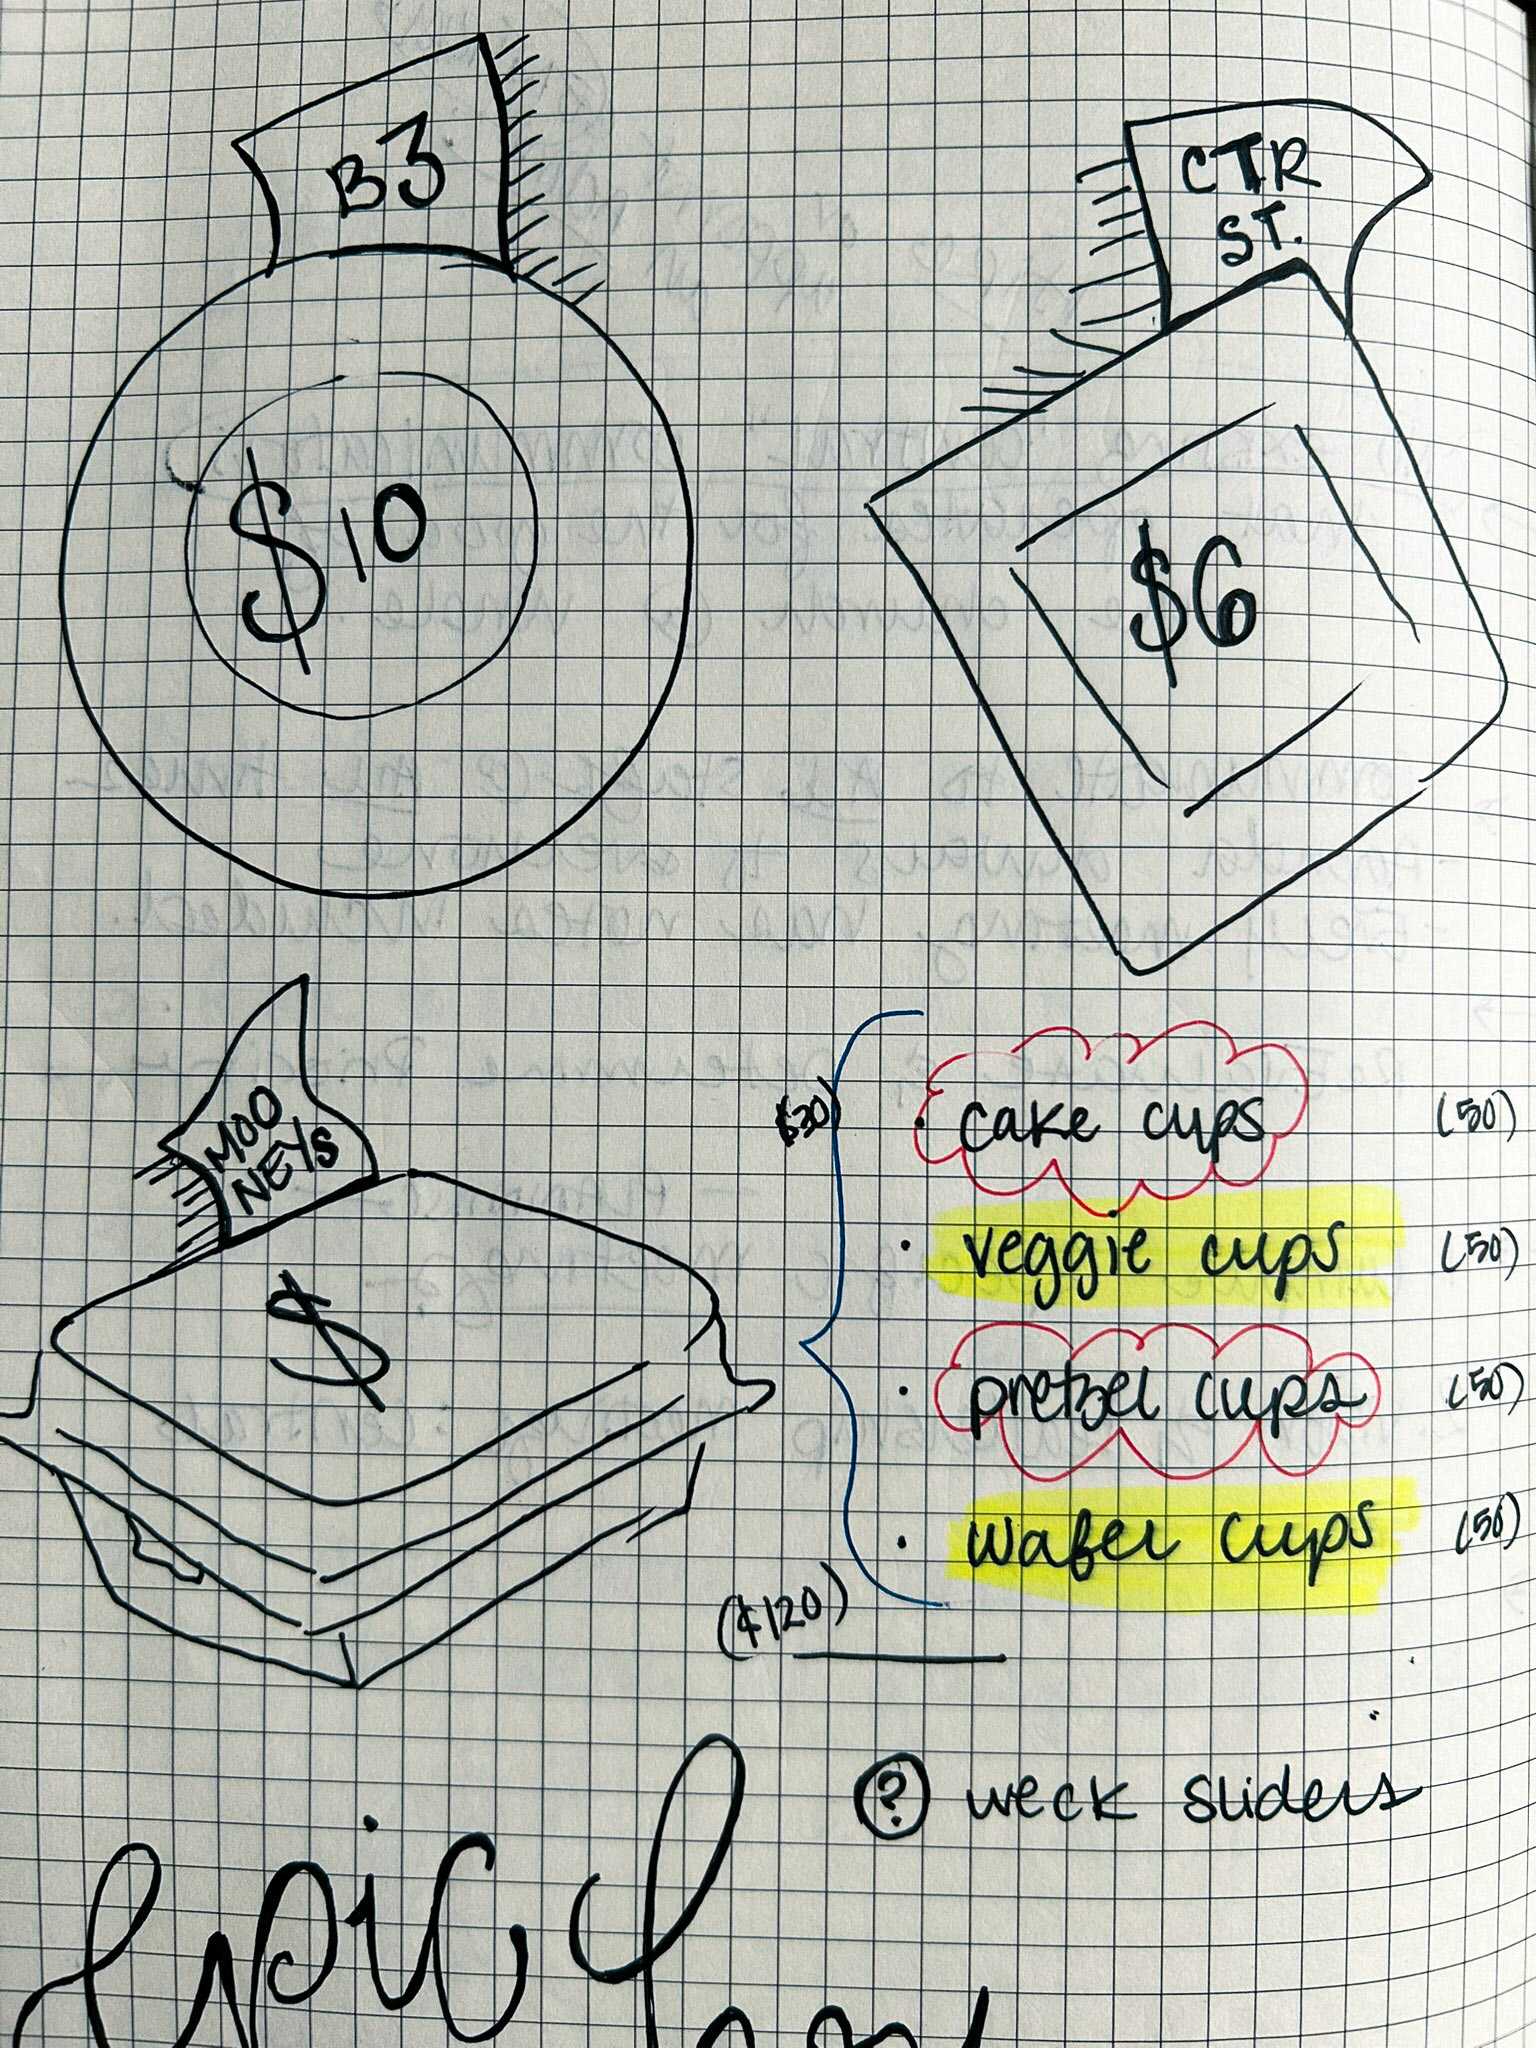 B3
CTR
ST.
$10
$6
MOO
NEYS
$
$30
• cake cups (50)
• veggie cups (50)
• pretzel cups (50)
• wafer cups (50)
($120)
? weck sliders
Epic